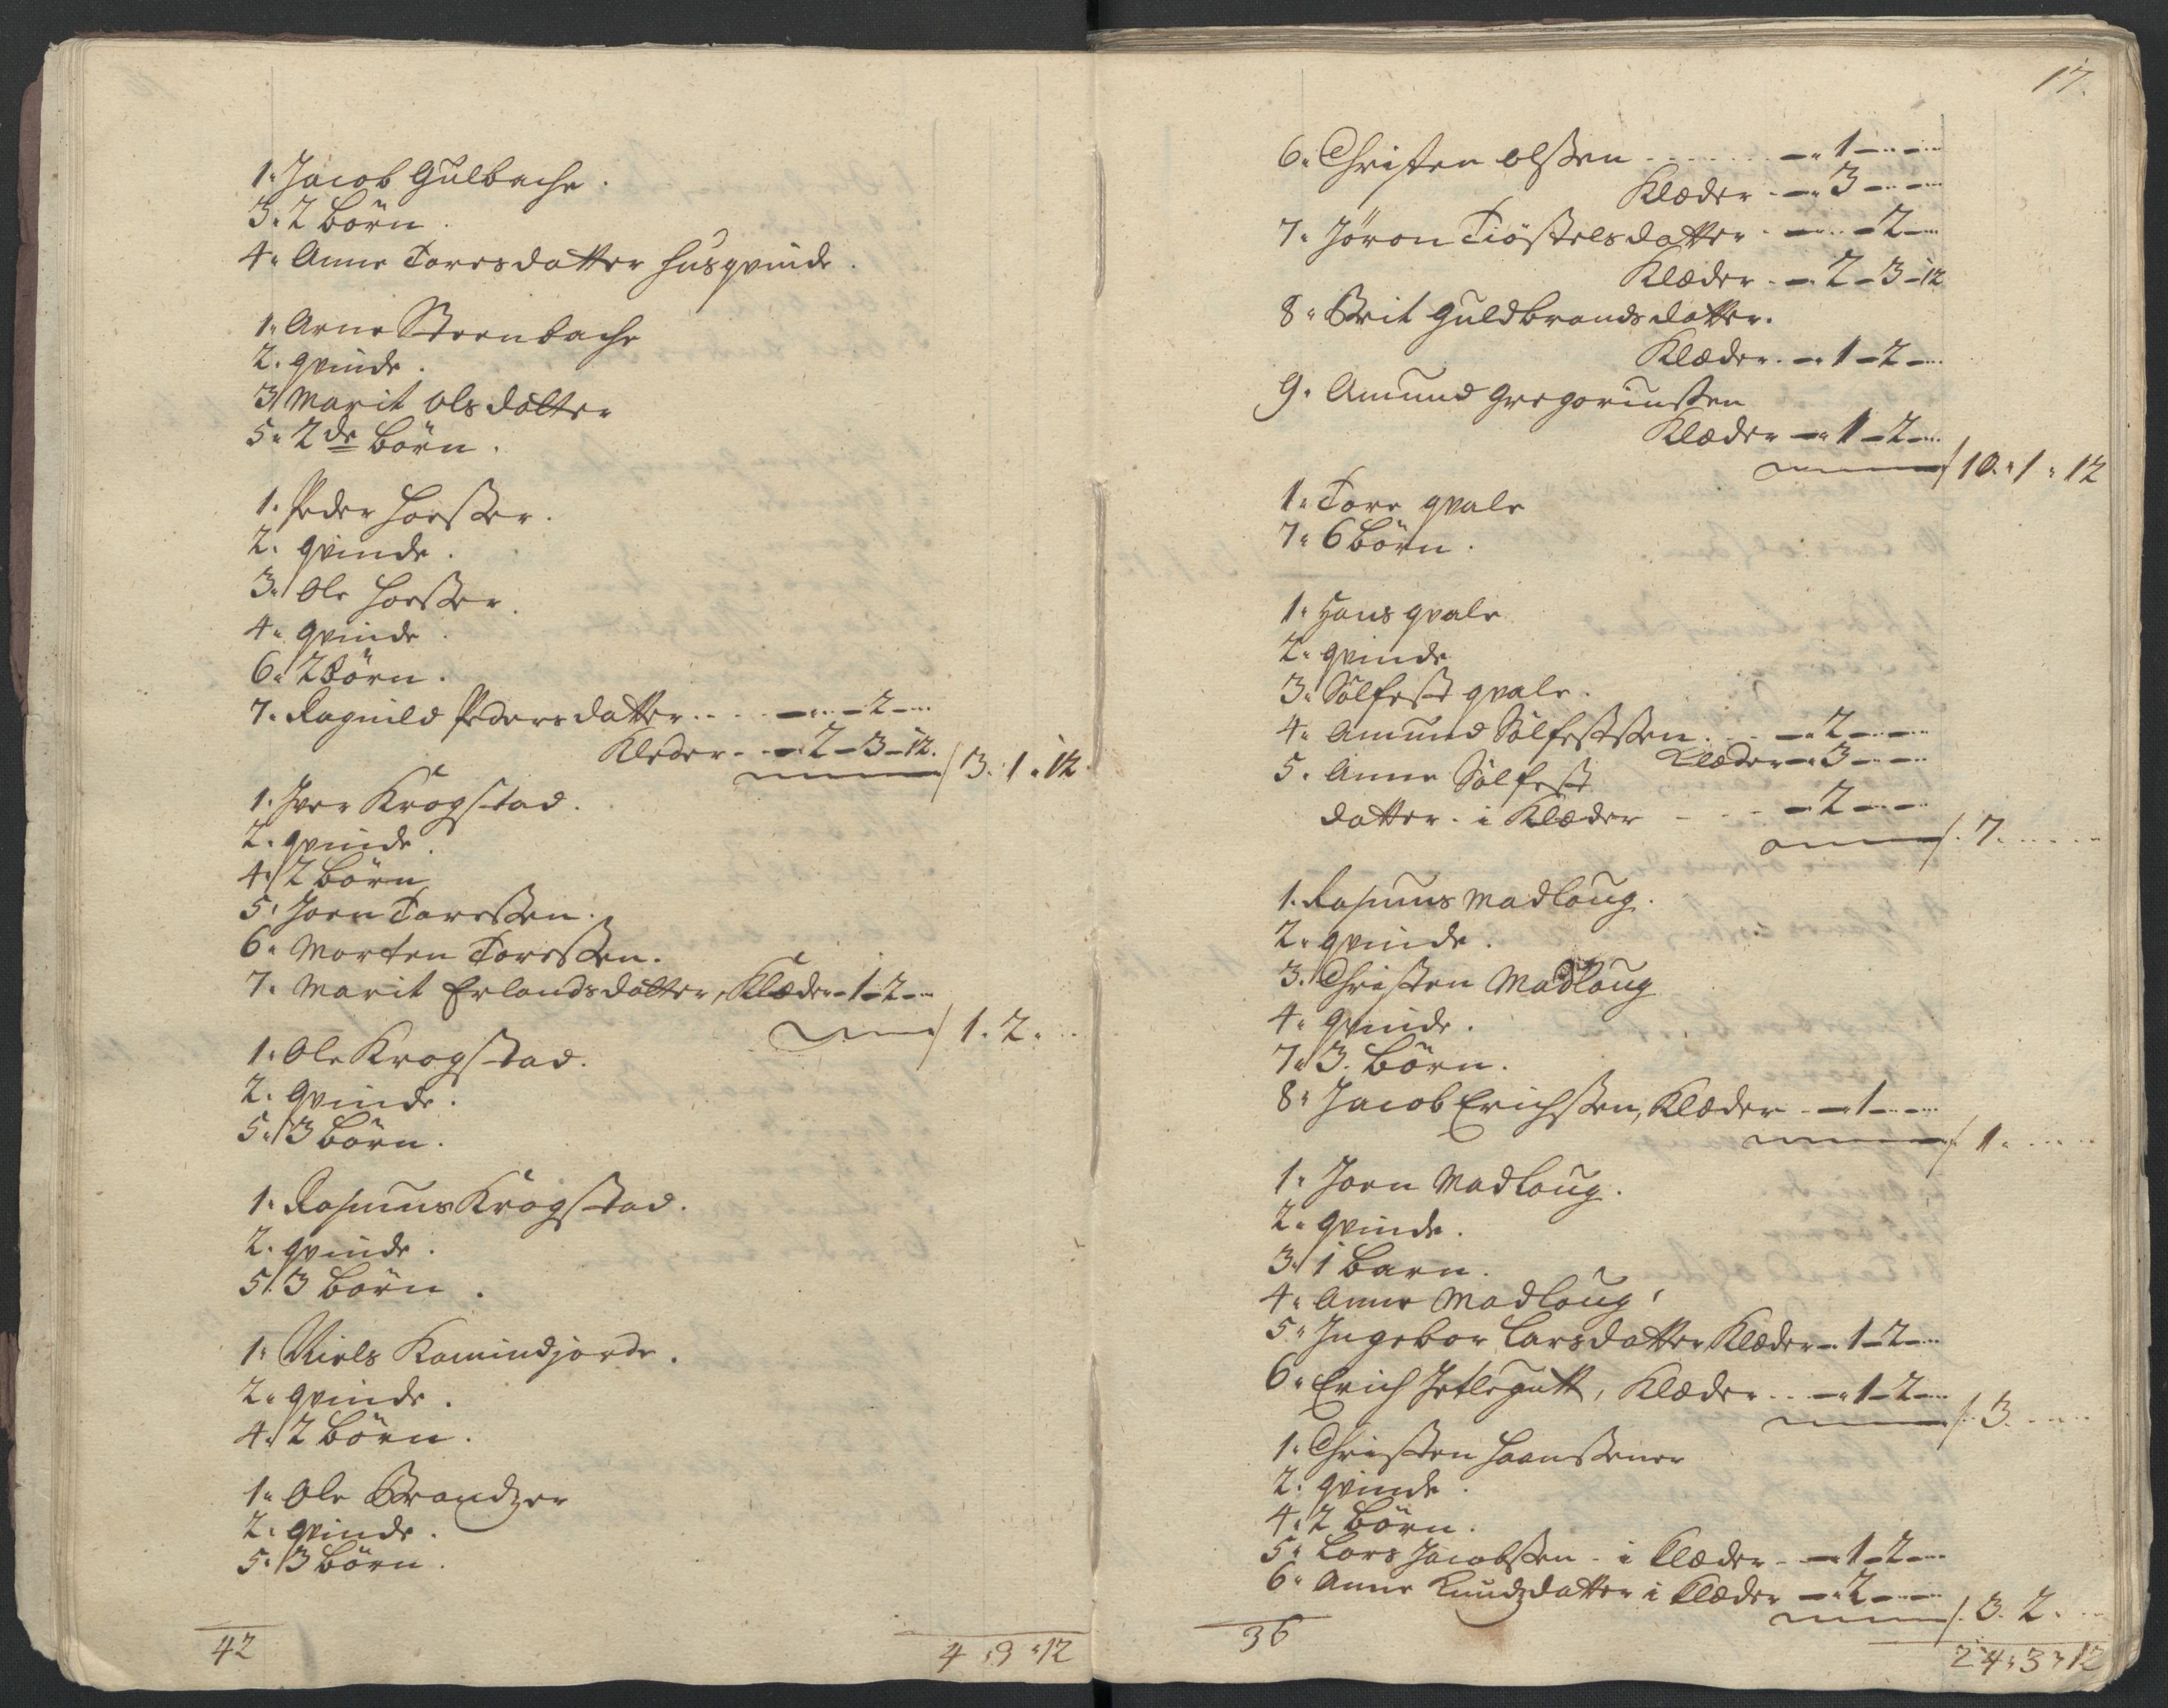 1. Jacob Gulbache.
3. 2 börn.
4. Anne Toresdatter husqvinde.
1. Arne Steenbache
2. qvinde.
3/ Marit Olsdatter
5. 2de börn.
1. Peder
2. qvinde.
3. Ole
4. qvinde.
6. 2 Börn.
7. Ragnild Pedersdatter .. – „ – 2 – ...
Kleder - - 2 – 3 – 12. / 3. 1. 12.
1. Iver Krogstad.
2. qvinde.
4. / 2 börn
5. Joen Toressen.
6. Morten Toressen.
7. Marit Erlandsdatter, Klæder – 1 – 2 – ...
/ 1. 2. ..
1. Ole Krogstad.
2. qvinde.
5. / 3 börn.
1. Rasmus Krogstad.
2. qvinde.
5 / 3 börn.
1. Niels Kamindjorde.
2. qvinde.
4. / 2 börn.
1. Ole Brandzer
2. qvinde.
5. / 3 börn.
42
4 „ 3 „ 12
17.
6. Christen Olssen - - - - – „ 1 – ... – ...
Klæder - – „ 3 – ... – ...
7. Jöron Tiöstelsdatter - – ... – 2 – ...
Klæder - – 2 – 3 – 12
8. Brit Guldbrandsdatter.
Klæder. – „ 1 – 2 – ...
9. Amund Gregoriussen
Klæder – „ 1 – 2 – ...
/ 10. „ 1 „ 12
1. Tore qvale
7. 6 börn.
1. Hans qvale
2. qvinde
3. Sölfest qvale.
4. Amund Sölfestssen. - – „ 2 – ... – ...
Klæder – „ 3 – ... – ...
5. Anne Sölfest
datter. i Klæder - - - – 2 – ... – ...
/. 7. ....
1. Rasmus Madloug.
2. qvinde.
3. Christen Madloug
4. qvinde.
7. / 3. börn.
8. Jacob Erichssen, Klæder - – „ 1 – ... – ...
/. 1. ....
1. Joen Madloug.
2. qvinde.
3. / 1 barn.
4. Anne Madloug.
5. Ingebor Larsdatter Klæder – „ 1 – 2 – ...
6. Erich , Klæder .. – „ 1 – 2 – ...
/. 3. ....
1. Christen
2. qvinde.
4. / 2 börn.
5. Lars Jacobssen - i klæder - – „ 1 – 2 – ...
6. Anne Knudzdatter i klæder – „ 2 – ... – ...
/. 3. 2. ..
36
24 „ 3 „ 12